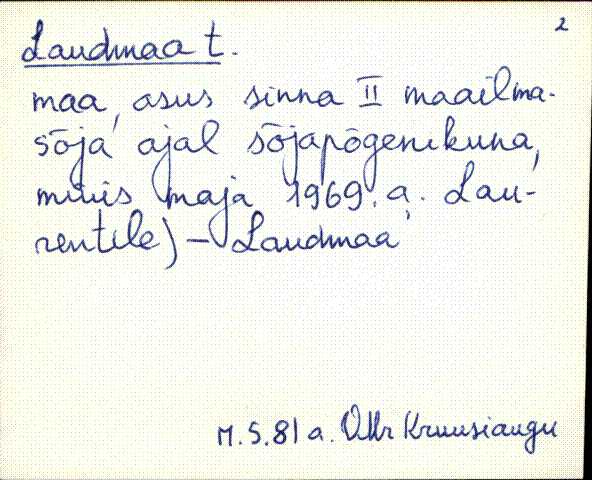 2
Laudmaa t.
maa, asus sinna II maailma-
sõja ajal sõjapõgenikuna,
müüs maja 1969. a. Lau-
rentile) – Laudmaa
M. S. 81 a. Kruusiaugu